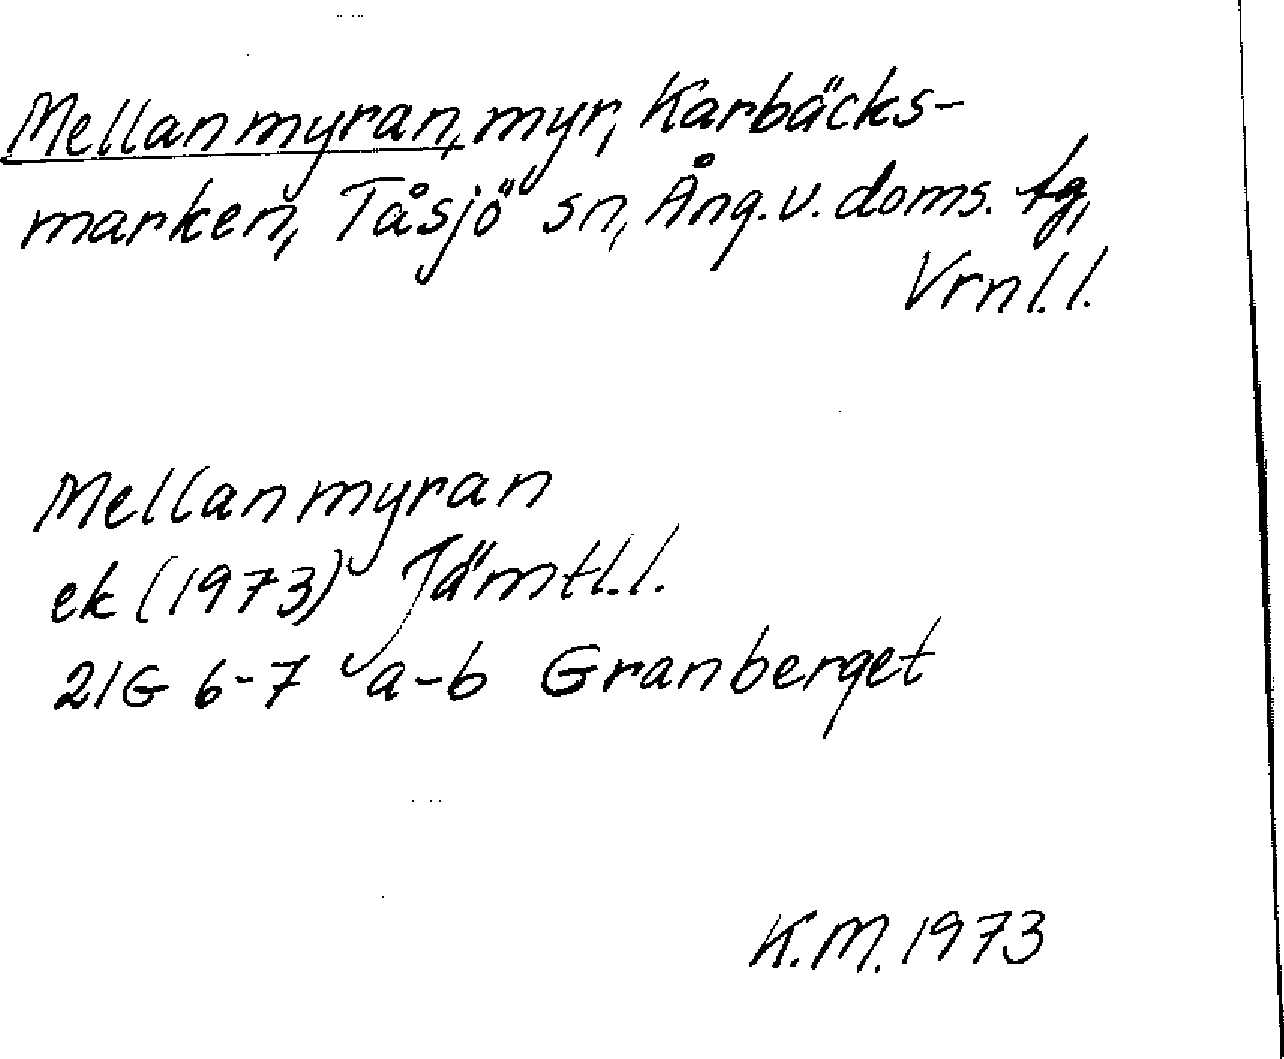 Mellanmyran, myr, Karbäcks-
marken, Tåsjö sn, Ång. v. doms. tg,
Vrnl. l.
Mellanmyran
ek (1973) Jämtl. l.
21G 6-7 a-b Granberget
K.M. 1973